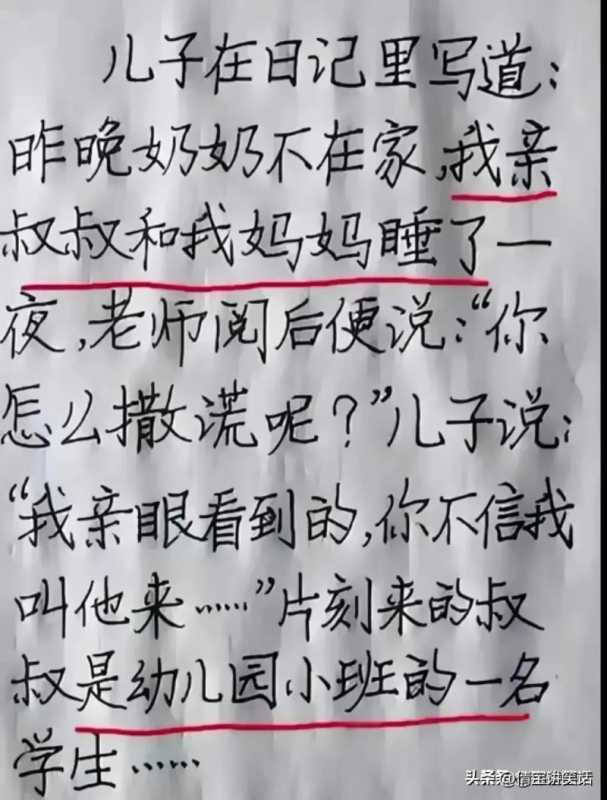 儿子在日记里写道:
昨晚奶奶不在家,我亲
叔叔和我妈妈睡了一
夜,老师阅后便说:“你
怎么撒谎呢?”儿子说:
“我亲眼看到的,你不信我
叫他来……”片刻来的叔
叔是幼儿园小班的一名
学生……
头条